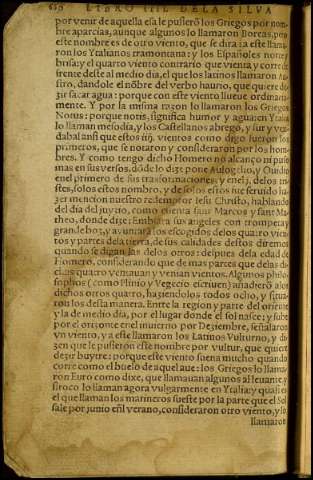 LIBRO IIII. DE LA SILVA
por venir de aquella esa le pusierõ los Griegos por nom
bre aparcias, aunque algunos lo llamaron Boreas, por
este nombre es de otro viento, que se dira: a este llama
ron los Ytalianos tramontana: y los Españoles norte
brisa: y el quarto viento contrario que vienta y corre de
frente deste al medio dia, el que los latinos llamaron Au
stro, dandole el nõbre del verbo haurio, que quiere de
zir sacar agua: porque con este viento llueue ordinaria
mente. Y por la misma razon lo llamaron los Griegos
Notus: porque notis, significa humor y agua: en Ytalia
lo llaman mesodia, y los Castellanos abrego, y sur y ven
dabal ansi que estos iiij. vientos como digo fueron los
primeros, que se notaron y consideraron por los hom
bres. Y como tengo dicho Homero no alcançò ni puso
mas en sus versos, dõde lo dize
en el primero de sus transformaciones, y en el j. delos
stes, solos estos nombro, y de solos estos fue seruido ha
zer mencion nuestro redemptor Jesu Christo, hablando
del dia del juyzio, como cuenta sant Marcos y sant Ma
theo, donde dize: Embiara sus angeles con trompeta y
grande boz, y ayuntara los escogidos delos quatro vien
tos y partes dela tierra, de sus calidades destos diremos
quando se digan las delos otros: despues dela edad de
Homero, considerando que de mas partes que delas di
chas quatro ventauan y venian vientos. Algunos philo
sophos (como Plinio y Vegecio escriuen) añadierõ alos
dichos otros quatro, haziendolos todos ocho, y situa
ron los desta manera. Entre la region y parte del oriente
y la de medio dia, por el lugar donde el sol nasce: y sube
por el orizonte en el inuierno por Deziembre, señalaron
vn viento, y a este llamaron los Latinos Vulturno, y di
zen que le pusieron este nombre por vultur, que quiere
dezir buytre: porque este viento suena mucho quando
corre como el buelo de aquel aue: los Griegos lo llama
ron Euro como dixe, que llamauan algunos al leuante, y
siroco lo llaman agora vulgarmente en Ytalia: y qual es
el que llaman los marineros sueste por la parte que el Sol
sale por junio en̄l verano, consideraron otro viento, y lo
llamaron